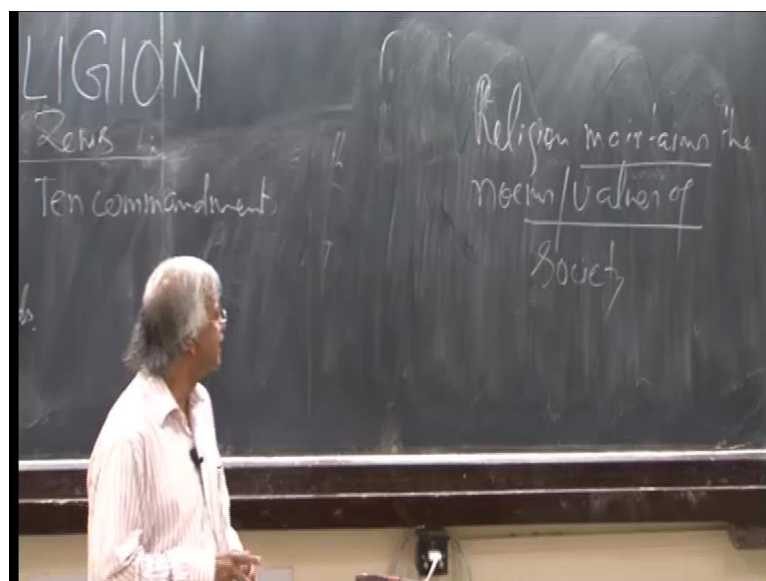 LIGION
Ten commandments
Religion maintains the
norms/values of
Society